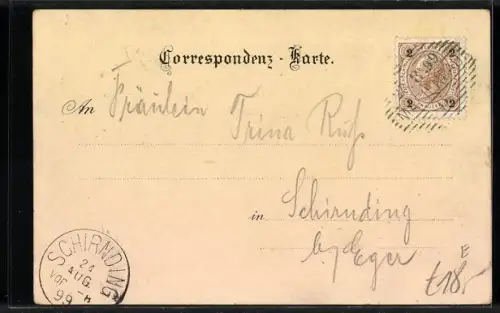 Correspondenz-Karte.
2 2
2 2
An Fräulein
Trina
in Schirnding
b/Eger
SCHIRNDING
21
AUG.
VOR
99
E
€18,-